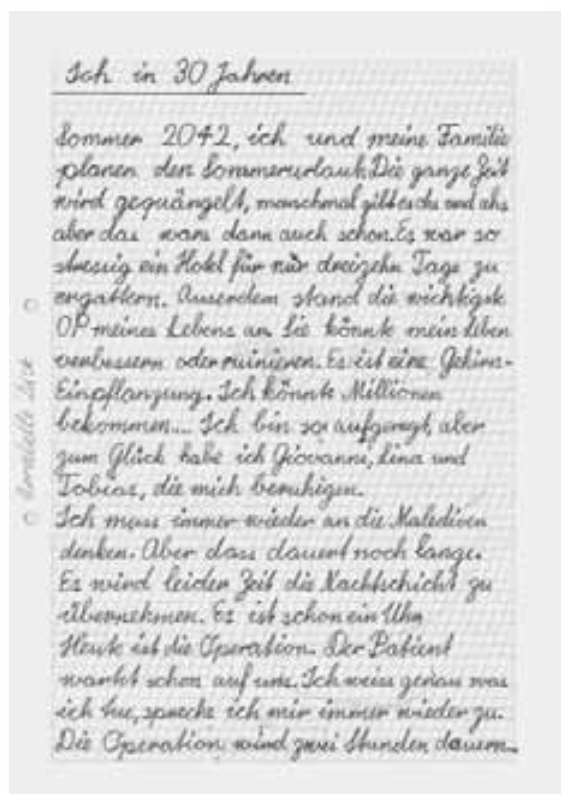 Ich in 30 Jahren
Sommer 2042, ich und meine Familie
planen den Sommerurlaub. Die ganze Zeit
wird gequängelt, manchmal gibt es ohs und ahs
aber das wars dann auch schon. Es war so
stressig ein Hotel für nur dreizehn Tage zu
ergattern. Auserdem stand die wichtigste
OP meines Lebens an. Sie könnte mein Leben
verbessern oder ruinieren. Es ist eine Gehirn-
Einpflanzung. Ich könnte Millionen
bekommen... Ich bin so aufgeregt, aber
zum Glück habe ich Giovanni, Lina und
Tobias, die mich beruhigen.
Ich muss immer wieder an die Malediven
denken. Aber dass dauert noch lange.
Es wird leider Zeit die Nachtschicht zu
übernehmen. Es ist schon ein Uhr
Heute ist die Operation. Der Patient
wartet schon auf uns. Ich weiss genau was
ich tue, spreche ich mir immer wieder zu.
Die Operation wird zwei Stunden dauern.